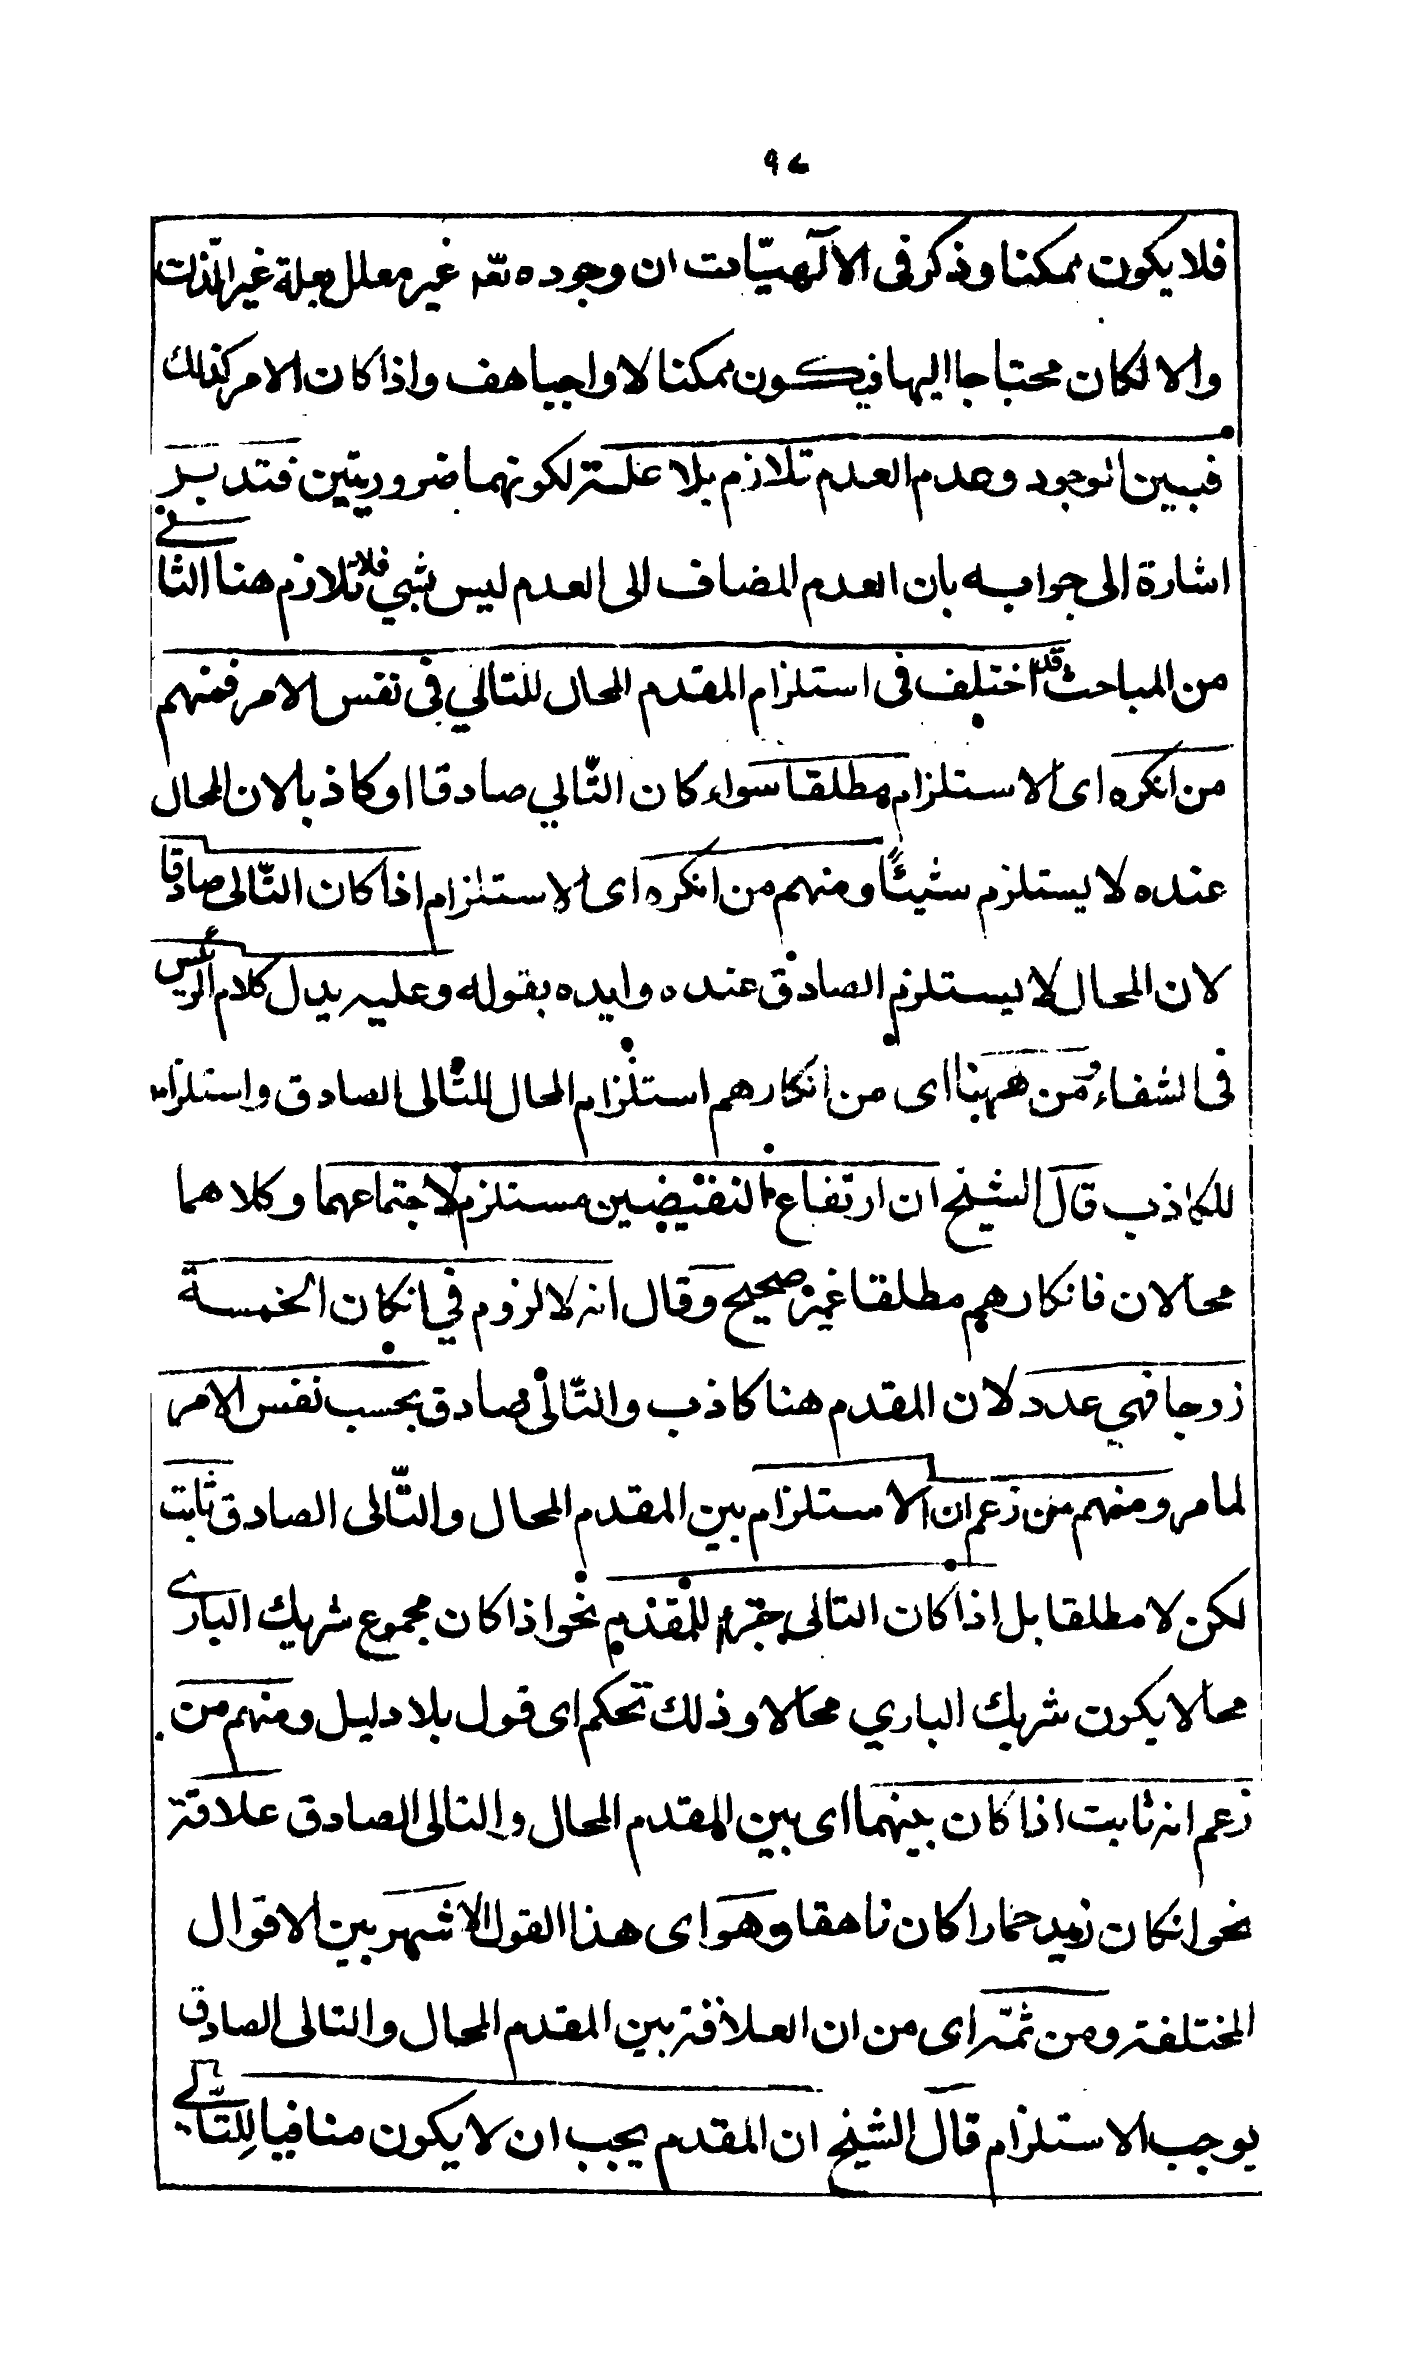 ٩٧
فلا يكون ممكنا وذكر فى الآلهيّات ان وجوده تعه غير معلل بعلة غير الذات
والا لكان محتاجا اليها فيكون ممكنا لا واجبا هف واذا كان الامر كذلك
فبين الوجود وعدم العدم تلازم بلا علة لكونهما ضروريتين فتدبر
اشارة الى جوابه بان العدم المضاف الى العدم ليس بشي فلا تلازم هنا الثانى
من المباحث قد اختلف فى استلزام المقدم المحال للتالي فى نفس الامر فمنهم
من انكره اى الاستلزام مطلقا سواء كان التّالي صادقا او كاذبا لان المحال
عنده لا يستلزم شيئًا ومنهم من انكره اى الاستلزام اذا كان التّالى صادقا
لان المحال لا يستلزم الصادق عنده وايده بقوله وعليه يدل كلام الرئيس
فى الشفاء ومن ههنا اى من انكارهم استلزام المحال للتّالى الصادق واستلزامه
للكاذب قال الشيخ ان ارتفاع النقيضين مستلزم لاجتماعهما وكلاهما
محالان فانكارهم مطلقا غير صحيح وقال انه لا لزوم في ان كان الخمسة
زوجا فهي عدد لان المقدم هنا كاذب والتّالى صادق بحسب نفس الامر
لما مر ومنهم من زعم ان الاستلزام بين المقدم المحال والتّالى الصادق ثابت
لكن لا مطلقا بل اذا كان التالى جزء للمقدم نحو اذا كان مجموع شريك البارى
محالا يكون شريك الباري محالا وذلك تحكم اى قول بلا دليل ومنهم من
زعم انه ثابت اذا كان بينهما اى بين المقدم المحال والتالى الصادق علاقة
نحو ان كان زيد حمارا كان ناهقا وهو اى هذا القول الاشهر بين الاقوال
المختلفة ومن ثمّه اى من ان العلاقة بين المقدم المحال والتالى الصادق
يوجب الاستلزام قال الشيخ ان المقدم يجب ان لا يكون منافيا للتّالى